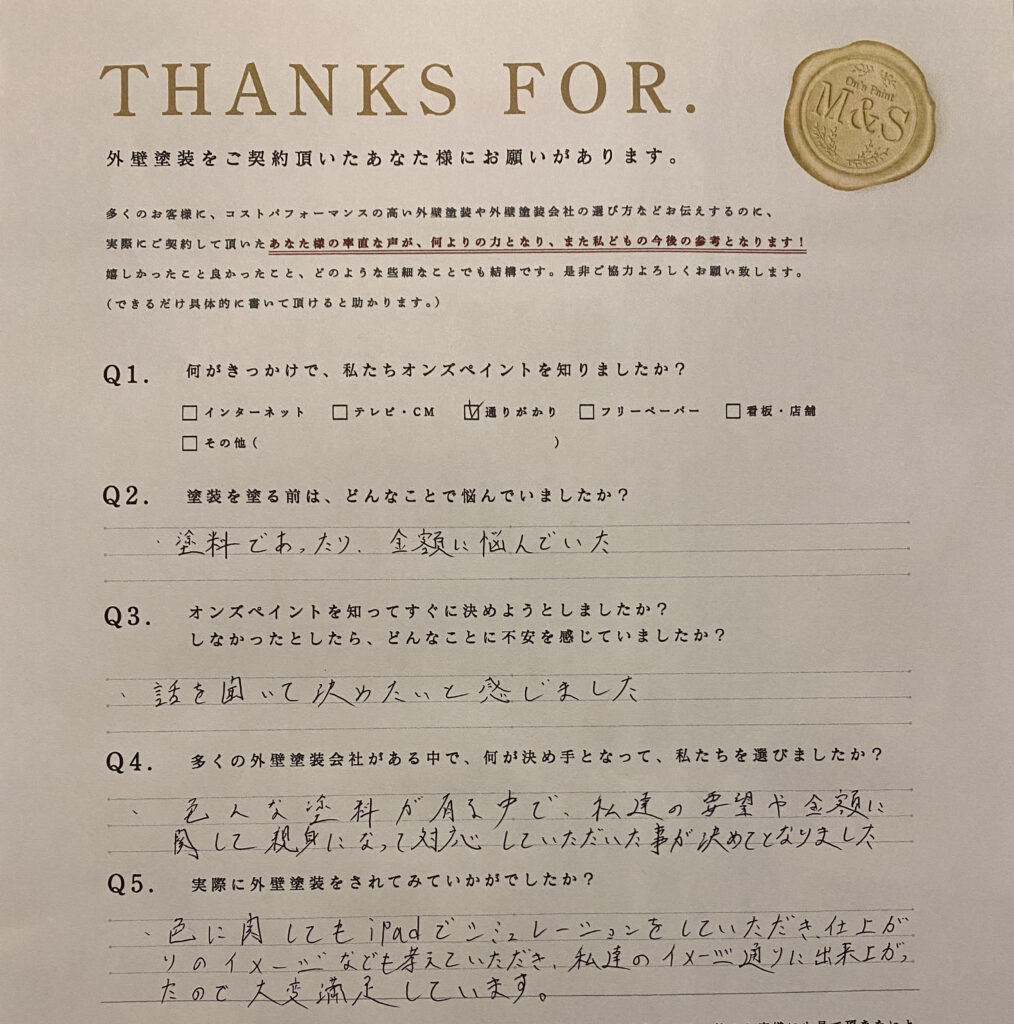 THANKS FOR.
On's Paint
M&S
外壁塗装をご契約頂いたあなた様にお願いがあります。
多くのお客様に、コストパフォーマンスの高い外壁塗装や外壁塗装会社の選び方などお伝えするのに、
実際にご契約して頂いたあなた様の率直な声が、何よりの力となり、また私どもの今後の参考となります!
嬉しかったこと良かったこと、どのような些細なことでも結構です。是非ご協力よろしくお願い致します。
(できるだけ具体的に書いて頂けると助かります。)
Q1. 何がきっかけで、私たちオンズペイントを知りましたか?
□インターネット □テレビ・CM ☑通りがかり □フリーペーパー □看板・店舗
□その他( )
Q2. 塗装を塗る前は、どんなことで悩んでいましたか?
・塗料であったり、金額に悩んでいた
Q3. オンズペイントを知ってすぐに決めようとしましたか?
しなかったとしたら、どんなことに不安を感じていましたか?
、話を聞いて決めたいと感じました
Q4. 多くの外壁塗装会社がある中で、何が決め手となって、私たちを選びましたか?
・色んな塗料が有る中で、私達の要望や金額に
関して親身になって対応していただいた事が決めてとなりました
Q5. 実際に外壁塗装をされてみていかがでしたか?
・色に関してもiPadでシミュレーションをしていただき、仕上が
りのイメージなども考えていただき、私達のイメージ通りに出来上がっ
たので大変満足しています。